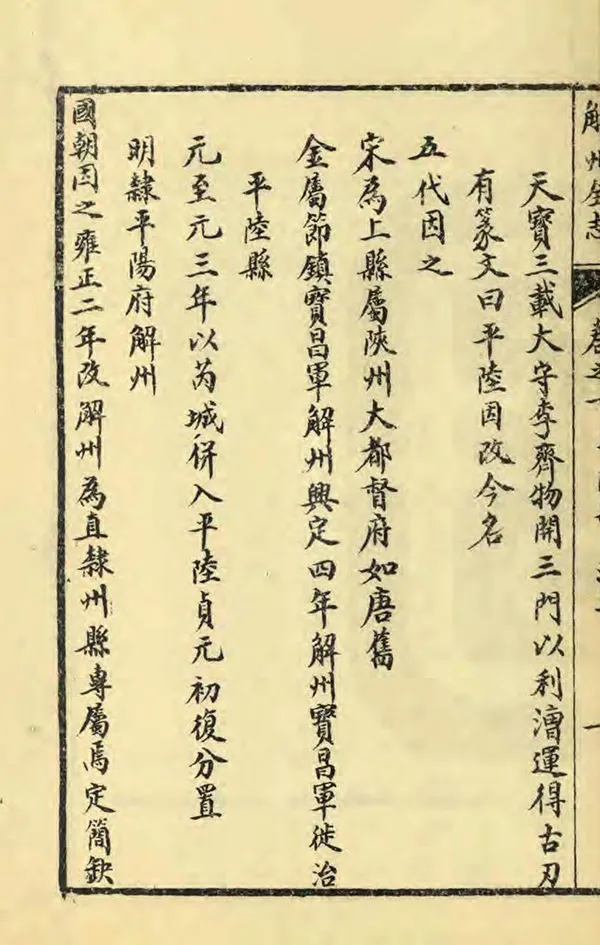 解州全志
天寶三載大守李齊物開三門以利漕運得古刃
有篆文曰平陸因改今名
五代因之
宋為上縣屬陝州大都督府如唐舊
金屬節鎮寶昌軍解州興定四年解州寶昌軍徙治
平陸縣
元至元三年以芮城併入平陸貞元初復分置
明隸平陽府解州
國朝因之雍正二年改解州為直隸州縣專屬焉定簡缺